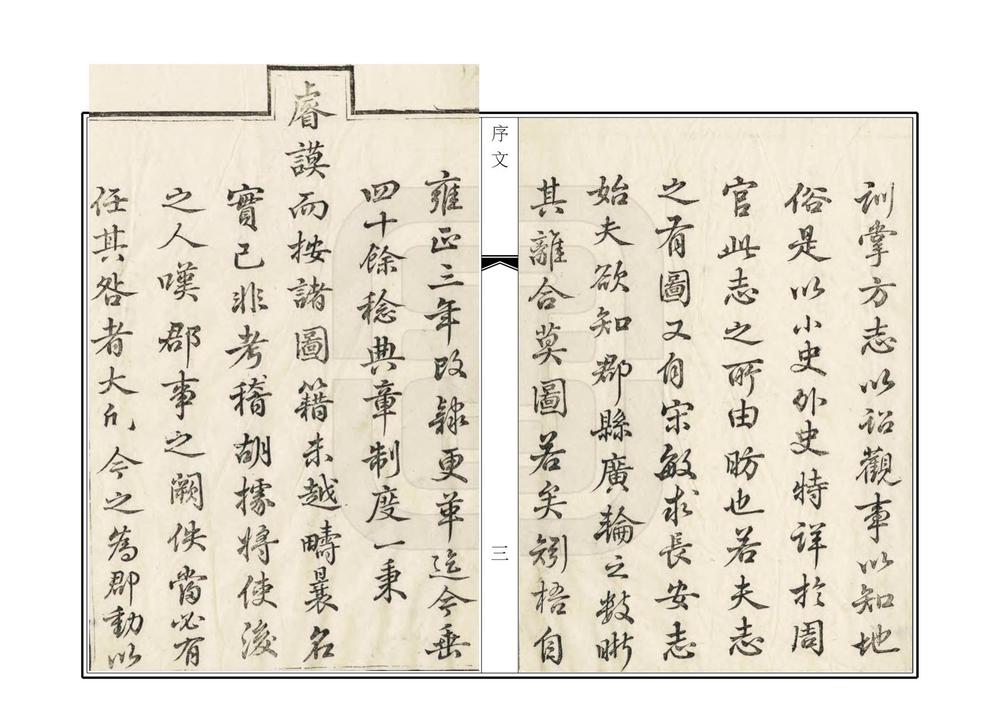 訓掌方志以詔觀事以知地
俗是以小史外史特詳於周
官此志之所由昉也若夫志
之有圖又自宋敏求長安志
始夫欲知郡縣廣輪之数晰
其離合莫圖若矣矧梧自
序文
三
雍正三年改隸更革迄今垂
四十餘稔典章制度一秉
睿謨而按諸圖籍未越疇曩名
實已非考稽胡據將使後
之人嘆郡事之闕佚當必有
任其咎者大凡今之為郡動以